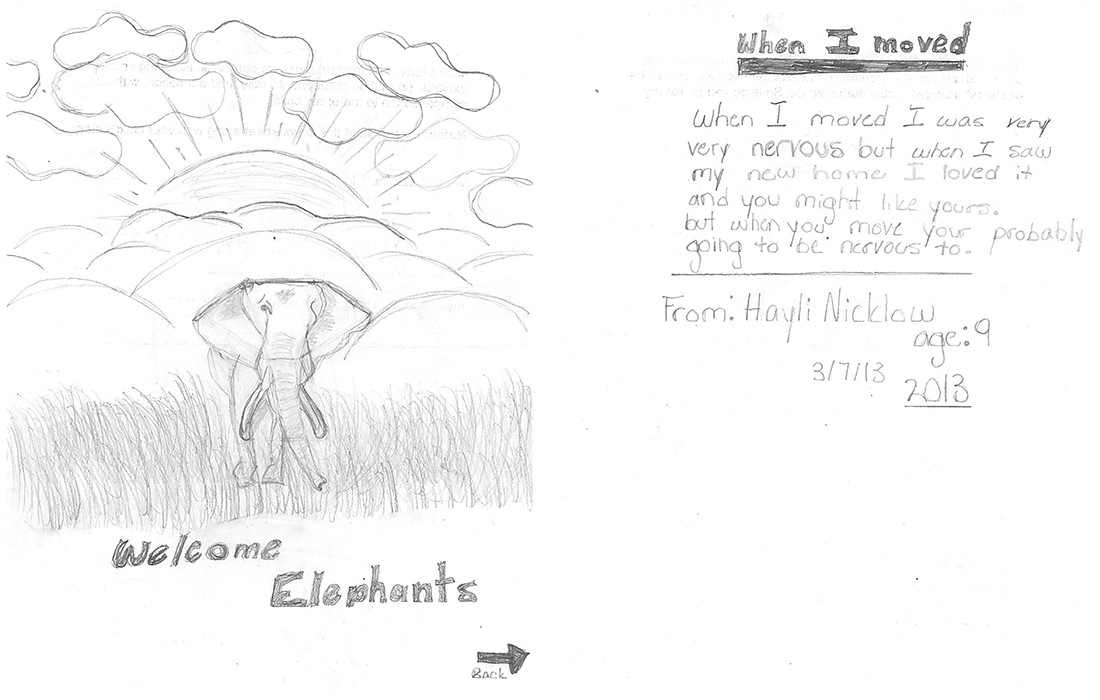 Welcome
Elephants
Back
When I moved
When I moved I was very
very nervous but when I saw
my new home I loved it
and you might like yours.
but when you move your probably
going to be nervous to.
From: Hayli Nicklow
age: 9
3/7/13
2013